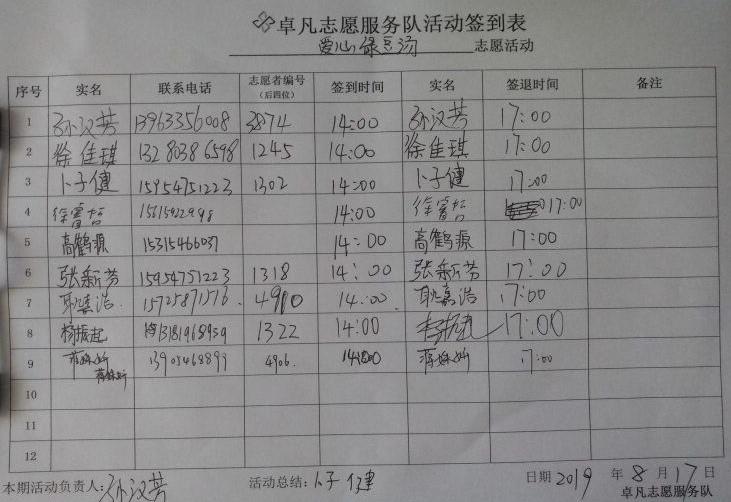 卓凡志愿服务队活动签到表
爱心绿豆汤 志愿活动
序号 实名 联系电话 志愿者编号（后四位） 签到时间 实名 签退时间 备注
1 孙汉芳 13963356008 3874 14:00 孙汉芳 17:00
2 徐佳琪 13280386598 1245 14:00 徐佳琪 17:00
3 卜子健 15954751223 1302 14:00 卜子健 17:00
4 徐富哲 14:00 徐富哲 17:00
5 高鹤源 15315466037 14:00 高鹤源 17:00
6 张新芳 15954751223 1318 14:00 张新芳 17:00
7 耿嘉浩 15725871576 4910 14:00 耿嘉浩 17:00
8 杨振起 13181968959 1322 14:00 17:00
9 13905469899 4906 17:00
10
11
12
本期活动负责人：孙汉芳 活动总结：卜子健 日期 2019 年 8 月 17 日
卓凡志愿服务队